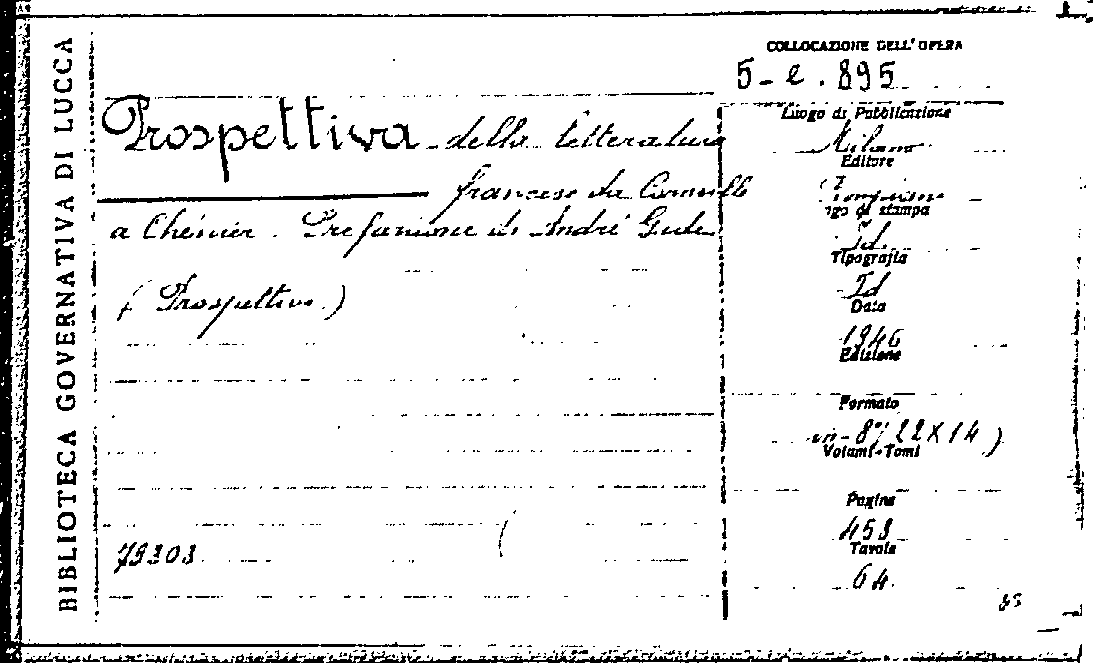 BIBLIOTECA GOVERNATIVA DI LUCCA
COLLOCAZIONE DELL'OPERA
5-e.895
Prospettiva della letteratura
francese da Corneille
a Chénier. Prefazione di André Gide
(Prospettive)
79303
Luogo di Pubblicazione
Milano
Editore
Bompiani
ogo di stampa
Id.
Tipografia
Id
Data
1946
Edizione
Formato
in-8°(22X14)
Volumi-Tomi
Pagine
453
Tavole
64.